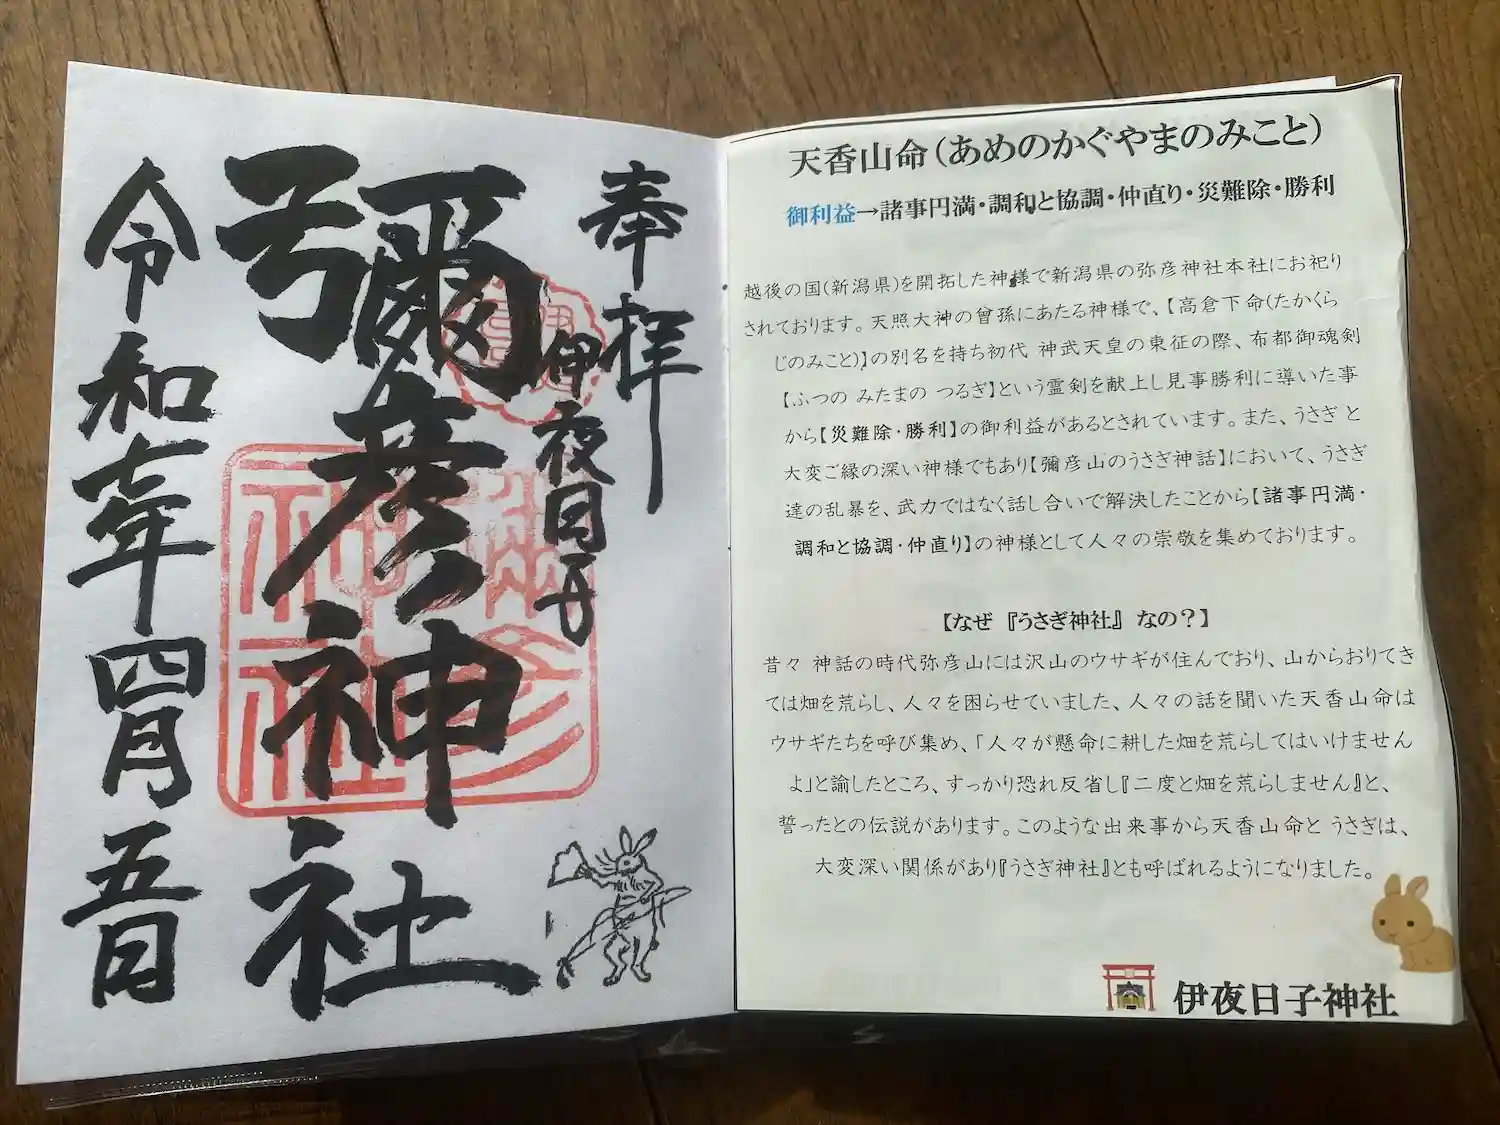 奉拝
伊夜日子
彌彦神社
令和七年四月五日
天香山命(あめのかぐやまのみこと)
御利益→諸事円満・調和と協調・仲直り・災難除・勝利
越後の国(新潟県)を開拓した神様で新潟県の弥彦神社本社にお祀り
されております。天照大神の曾孫にあたる神様で、【高倉下命(たかくら
じのみこと)】の別名を持ち初代 神武天皇の東征の際、布都御魂剣
【ふつの みたまの つるぎ】という霊剣を献上し見事勝利に導いた事
から【災難除・勝利】の御利益があるとされています。また、うさぎ と
大変ご縁の深い神様でもあり【彌彦山のうさぎ神話】において、うさぎ
達の乱暴を、武力ではなく話し合いで解決したことから【諸事円満・
調和と協調・仲直り】の神様として人々の崇敬を集めております。
【なぜ『うさぎ神社』なの?】
昔々 神話の時代弥彦山には沢山のウサギが住んでおり、山からおりてき
ては畑を荒らし、人々を困らせていました、人々の話を聞いた天香山命は
ウサギたちを呼び集め、「人々が懸命に耕した畑を荒らしてはいけません
よ」と諭したところ、すっかり恐れ反省し『二度と畑を荒らしません』と、
誓ったとの伝説があります。このような出来事から天香山命と うさぎは、
大変深い関係があり『うさぎ神社』とも呼ばれるようになりました。
伊夜日子神社